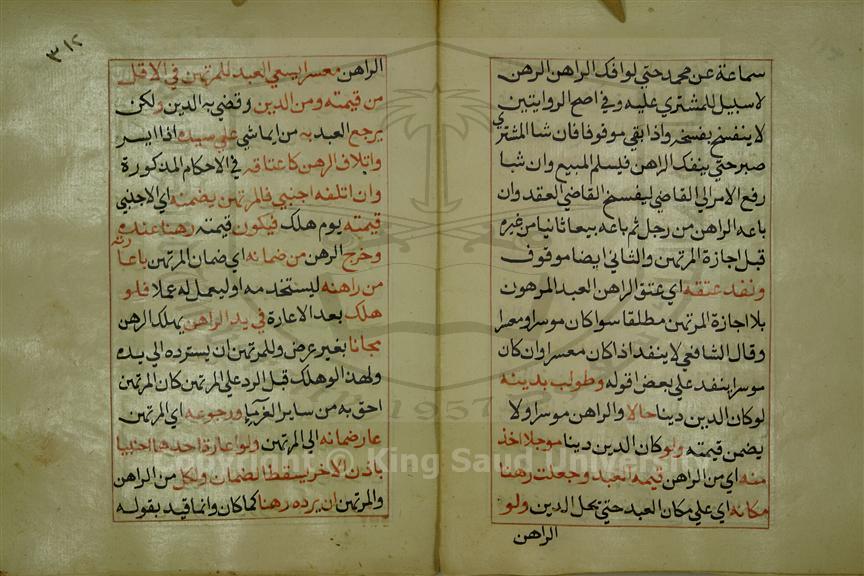 سماعة عن محمد حتي لو افتك الراهن الرهن
لا سبيل للمشتري عليه وفي اصح الروايتين
لا ينفسخ بفسخه واذا بقي موقوفا فان شا المشتري
صبر حتي ينفك الراهن فيسلم المبيع وان شا
رفع الامر الي القاضي ليفسخ القاضي العقد وان
باعه الراهن من رجل ثم باعه بيعا ثانيا من غيره
قبل اجازة المرتهن والثاني ايضا موقوف
ونفد عتقه اي عتق الراهن العبد المرهون
بلا اجازة المرتهن مطلقا سوا كان موسرا ومعسرا
وقال الشافعي لا ينفد اذا كان معسرا وان كان
موسرا ينفد علي بعض اقواله وطولب بدينه
لو كان الدين دينا حالا والراهن موسرا ولا
يضمن قيمته ولو كان الدين دينا موجلا اخذ
منه اي من الراهن قيمة العبد وجعلت رهنا
مكانه اي علي مكان العبد حتي يحل الدين ولو
الراهن
٣١٢
الراهن معسرا يسعي العبد للمرتهن في الاقل
من قيمته ومن الدين وقضي به الدين ولكن
يرجع العبد به من ايما شي علي سيده اذا ايسر
واتلاف الرهن كاعتاقه في الاحكام المذكورة
وان اتلفه اجنبي فالمرتهن يضمنه اي الاجنبي
قيمته يوم هلك فيكون قيمته رهنا عنده
وخرج الرهن من ضمانه اي ضمان المرتهن باعارته
من راهنه ليستخدمه او ليعمل له عملا فلو
هلك بعد الاعارة في يد الراهن يهلك الرهن
مجانا بغير عوض وللمرتهن ان يسترده الي يده
ولهذا لو هلك قبل الرد علي المرتهن كان المرتهن
احق به من ساير الغرما ورجوعه اي المرتهن
عاد ضمانه الي المرتهن ولو اعارة احدهما اجنبيا
باذن الاخر يسقط الضمان ولكل من الراهن
والمرتهن ان يرده رهنا كما كان وانما قيد بقوله
Copyright © King Saud University
1957